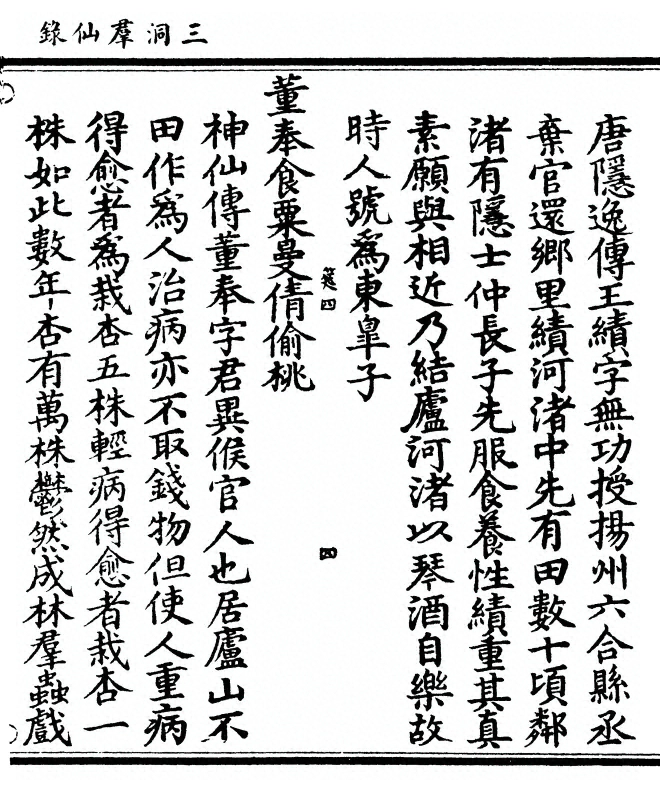 三洞羣仙錄
唐隱逸傳王績字無功授揚州六合縣丞
棄官還鄉里績河渚中先有田數十頃鄰
渚有隱士仲長子先服食養性績重其真
素願與相近乃結廬河渚以琴酒自樂故
時人號爲東臯子
筵四
四
董奉食栗曼倩偷桃
神仙傳董奉字君異候官人也居廬山不
田作爲人治病亦不取錢物但使人重病
得愈者爲栽杏五株輕病得愈者栽杏一
株如此數年杏有萬株鬱然成林羣蟲戲